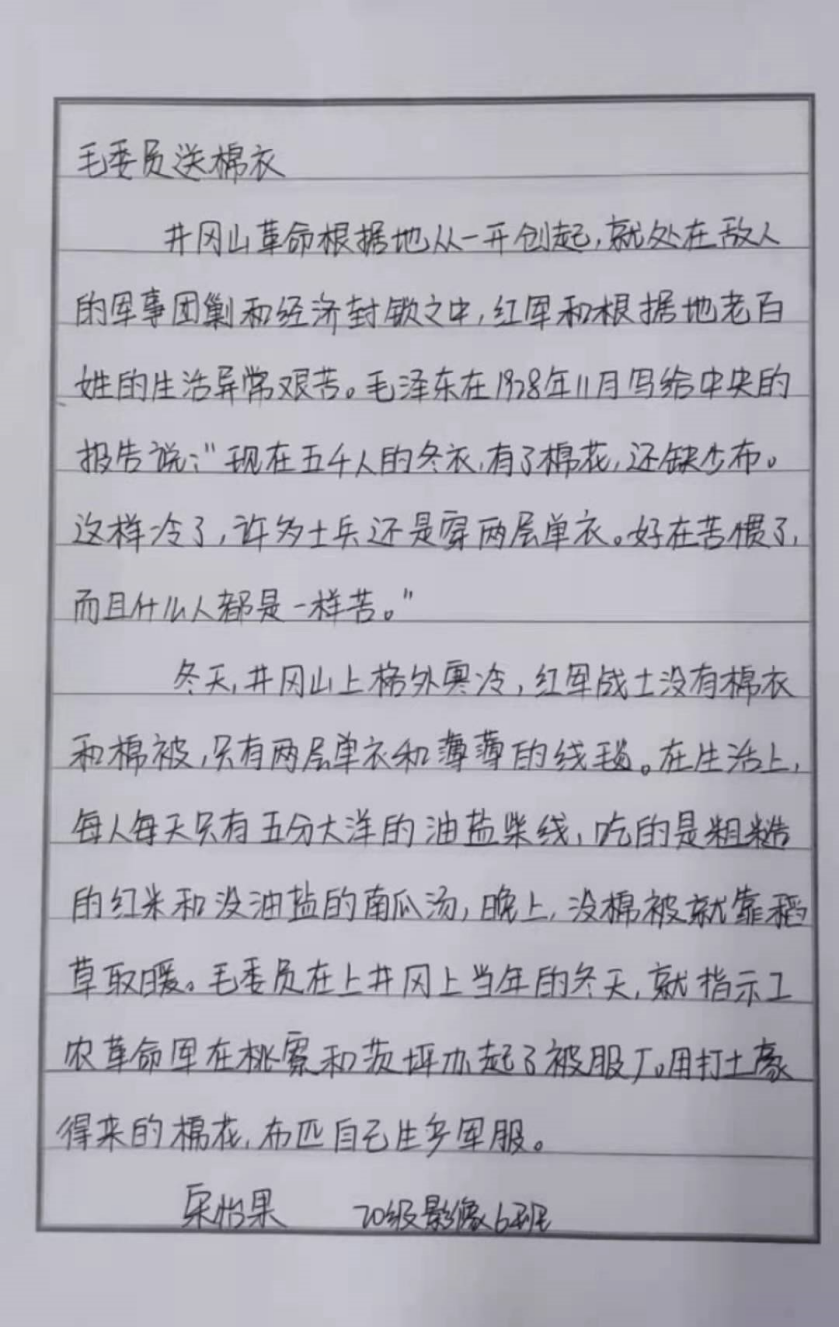 毛委员送棉衣
井冈山革命根据地从一开创起,就处在敌人
的军事团剿和经济封锁之中,红军和根据地老百
姓的生活异常艰苦。毛泽东在1928年11月写给中央的
报告说:“现在五千人的冬衣,有了棉花,还缺少布。
这样冷了,许多士兵还是穿两层单衣。好在苦惯了,
而且什么人都是一样苦。”
冬天,井冈山上格外寒冷,红军战士没有棉衣
和棉被,只有两层单衣和薄薄的线毯。在生活上,
每人每天只有五分大洋的油盐柴线,吃的是粗糙
的红米和没油盐的南瓜汤,晚上,没棉被就靠稻
草取暖。毛委员在上井冈上当年的冬天,就指示工
农革命军在桃寮和茨坪办起了被服厂。用打土豪
得来的棉花,布匹自己生多军服。
怡果 20级影像6班